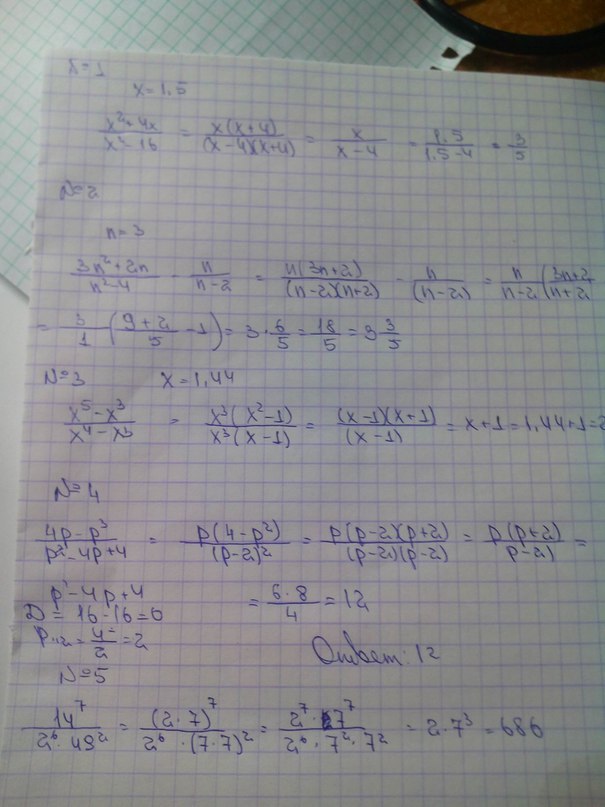 x=1
x=1,5
x²+4x / x²-16 = x(x+4) / (x-4)(x+4) = x / x-4 = 1,5 / 1,5-4 = 3/5
№2
n=3
3n²+2n / n²-4 - n / n-2 = n(3n+2) / (n-2)(n+2) - n / (n-2) = n / n-2 (3n+2 / n+2
= 3/1 (9+2 / 5 -1) = 3·6/5 = 18/5 = 3 3/5
№3 x=1,44
x⁵-x³ / x⁴-x³ = x³(x²-1) / x³(x-1) = (x-1)(x+1) / (x-1) = x+1=1,44+1=2
№4
4p-p³ / p²-4p+4 = p(4-p²) / (p-2)² = p(p-2)(p+2) / (p-2)(p-2) = p(p+2) / p-2) =
p²-4p+4 = 6·8 / 4 = 12
D = 16-16=0
= 4/2 = 2
Ответ: 12
№5
14⁷ / 2⁶·49² = (2·7)⁷ / 2⁶·(7·7)² = 2⁷·7⁷ / 2⁶·7²·7² = 2·7³ = 686